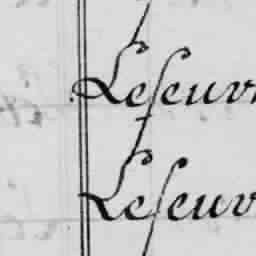 Lefeuvr
Lefeuv